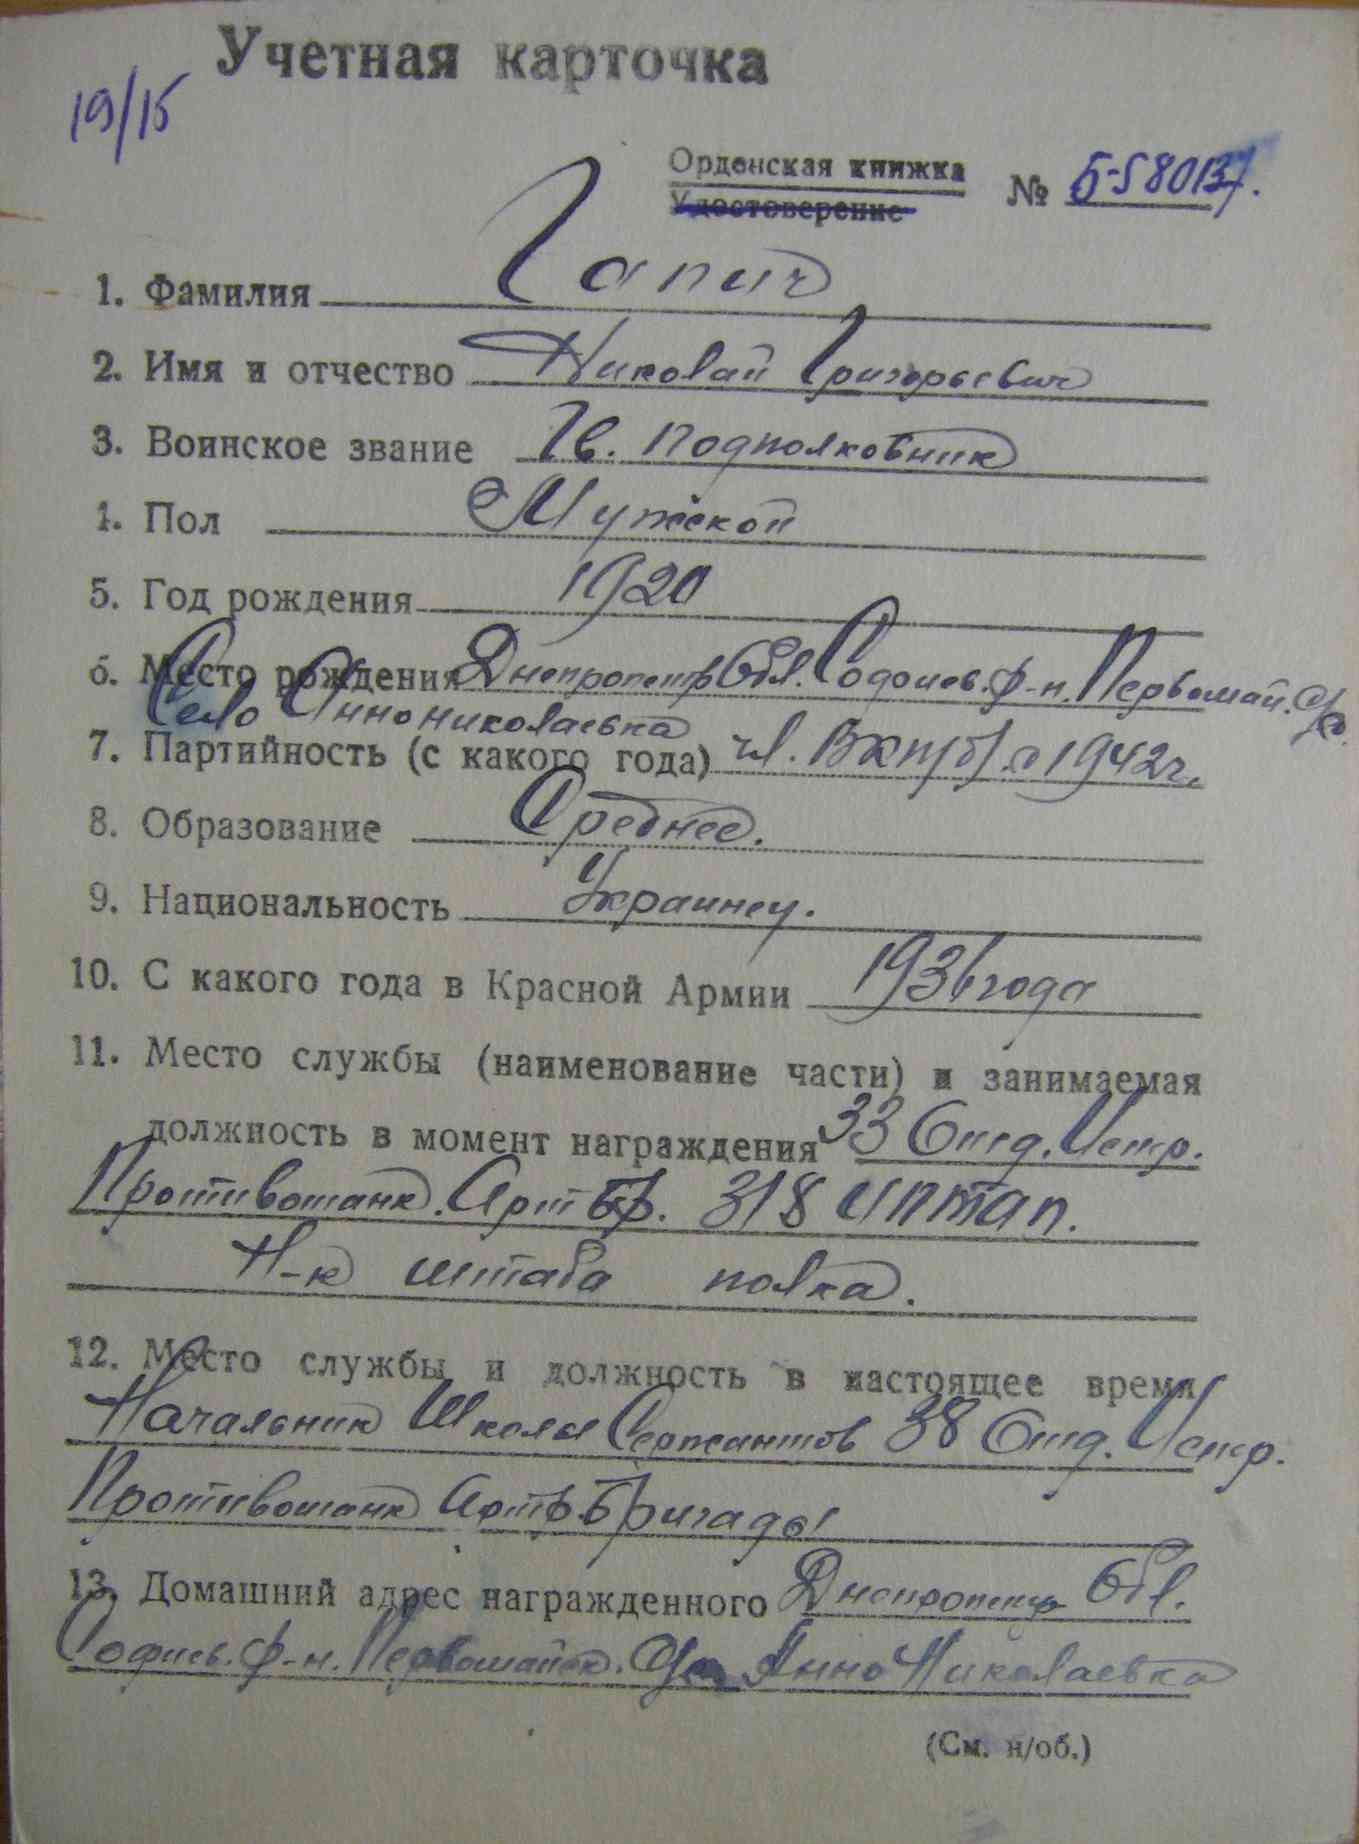 Учетная карточка
19/15
Орденская книжка
Удостоверение
№ Б-580137.
1. Фамилия Гапич
2. Имя и отчество Николай Григорьевич
3. Воинское звание Гв. подполковник
4. Пол Мужской
5. Год рождения 1920
6. Место рождения Днепропетр Обл. Софиев. р-н. Первомай. С/с
Село Анно николаевка
7. Партийность (с какого года) чл. ВКП/б/ с 1942 г.
8. Образование Среднее.
9. Национальность Украинец.
10. С какого года в Красной Армии 1936 года
11. Место службы (наименование части) и занимаемая
должность в момент награждения 33 Отд. Истр.
Противотанк. Арт Бр. 318 ИПТАП.
Н-к штаба полка.
12. Место службы и должность в настоящее время
Начальник Школы Сержантов 38 Отд. Истр.
Противотанк Арт. Бригады
13. Домашний адрес награжденного Днепропетр Обл.
Софиев. р-н. Первомайск. Анно Николаевка
(См. н/об.)